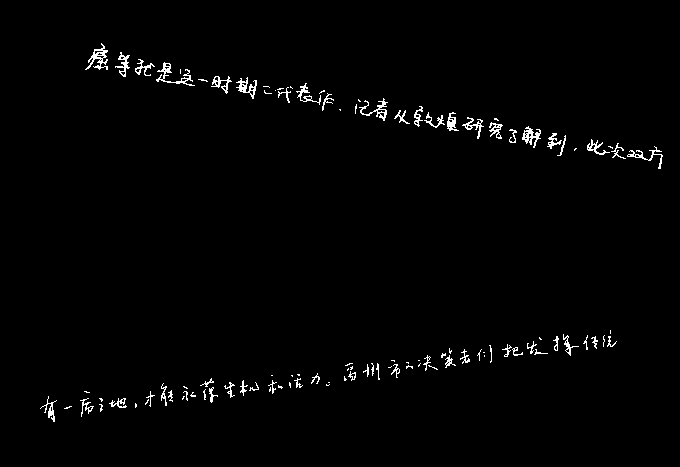 等就是这一时期二代表作,记者从敦煌研究了解到,此次双方
有一席之地,才能永葆生机和活力。禹州市的决策者们把发挥传统